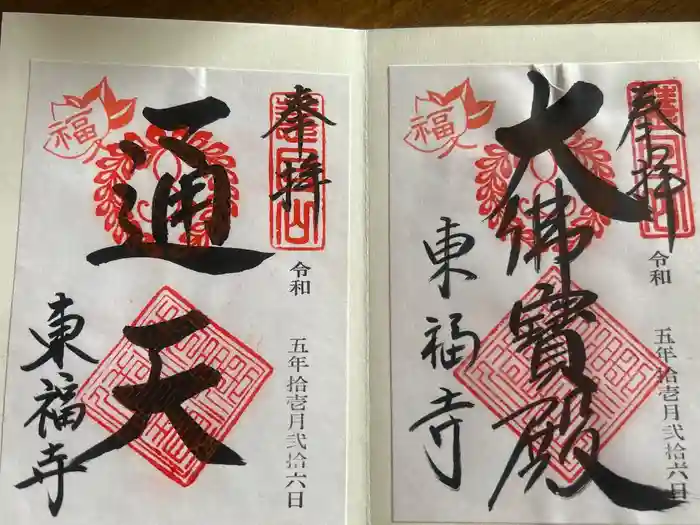 奉拝
大佛寶殿
東福寺
令和 五年拾壱月弐拾六日
福
奉拝
通天
東福寺
令和 五年拾壱月弐拾六日
福